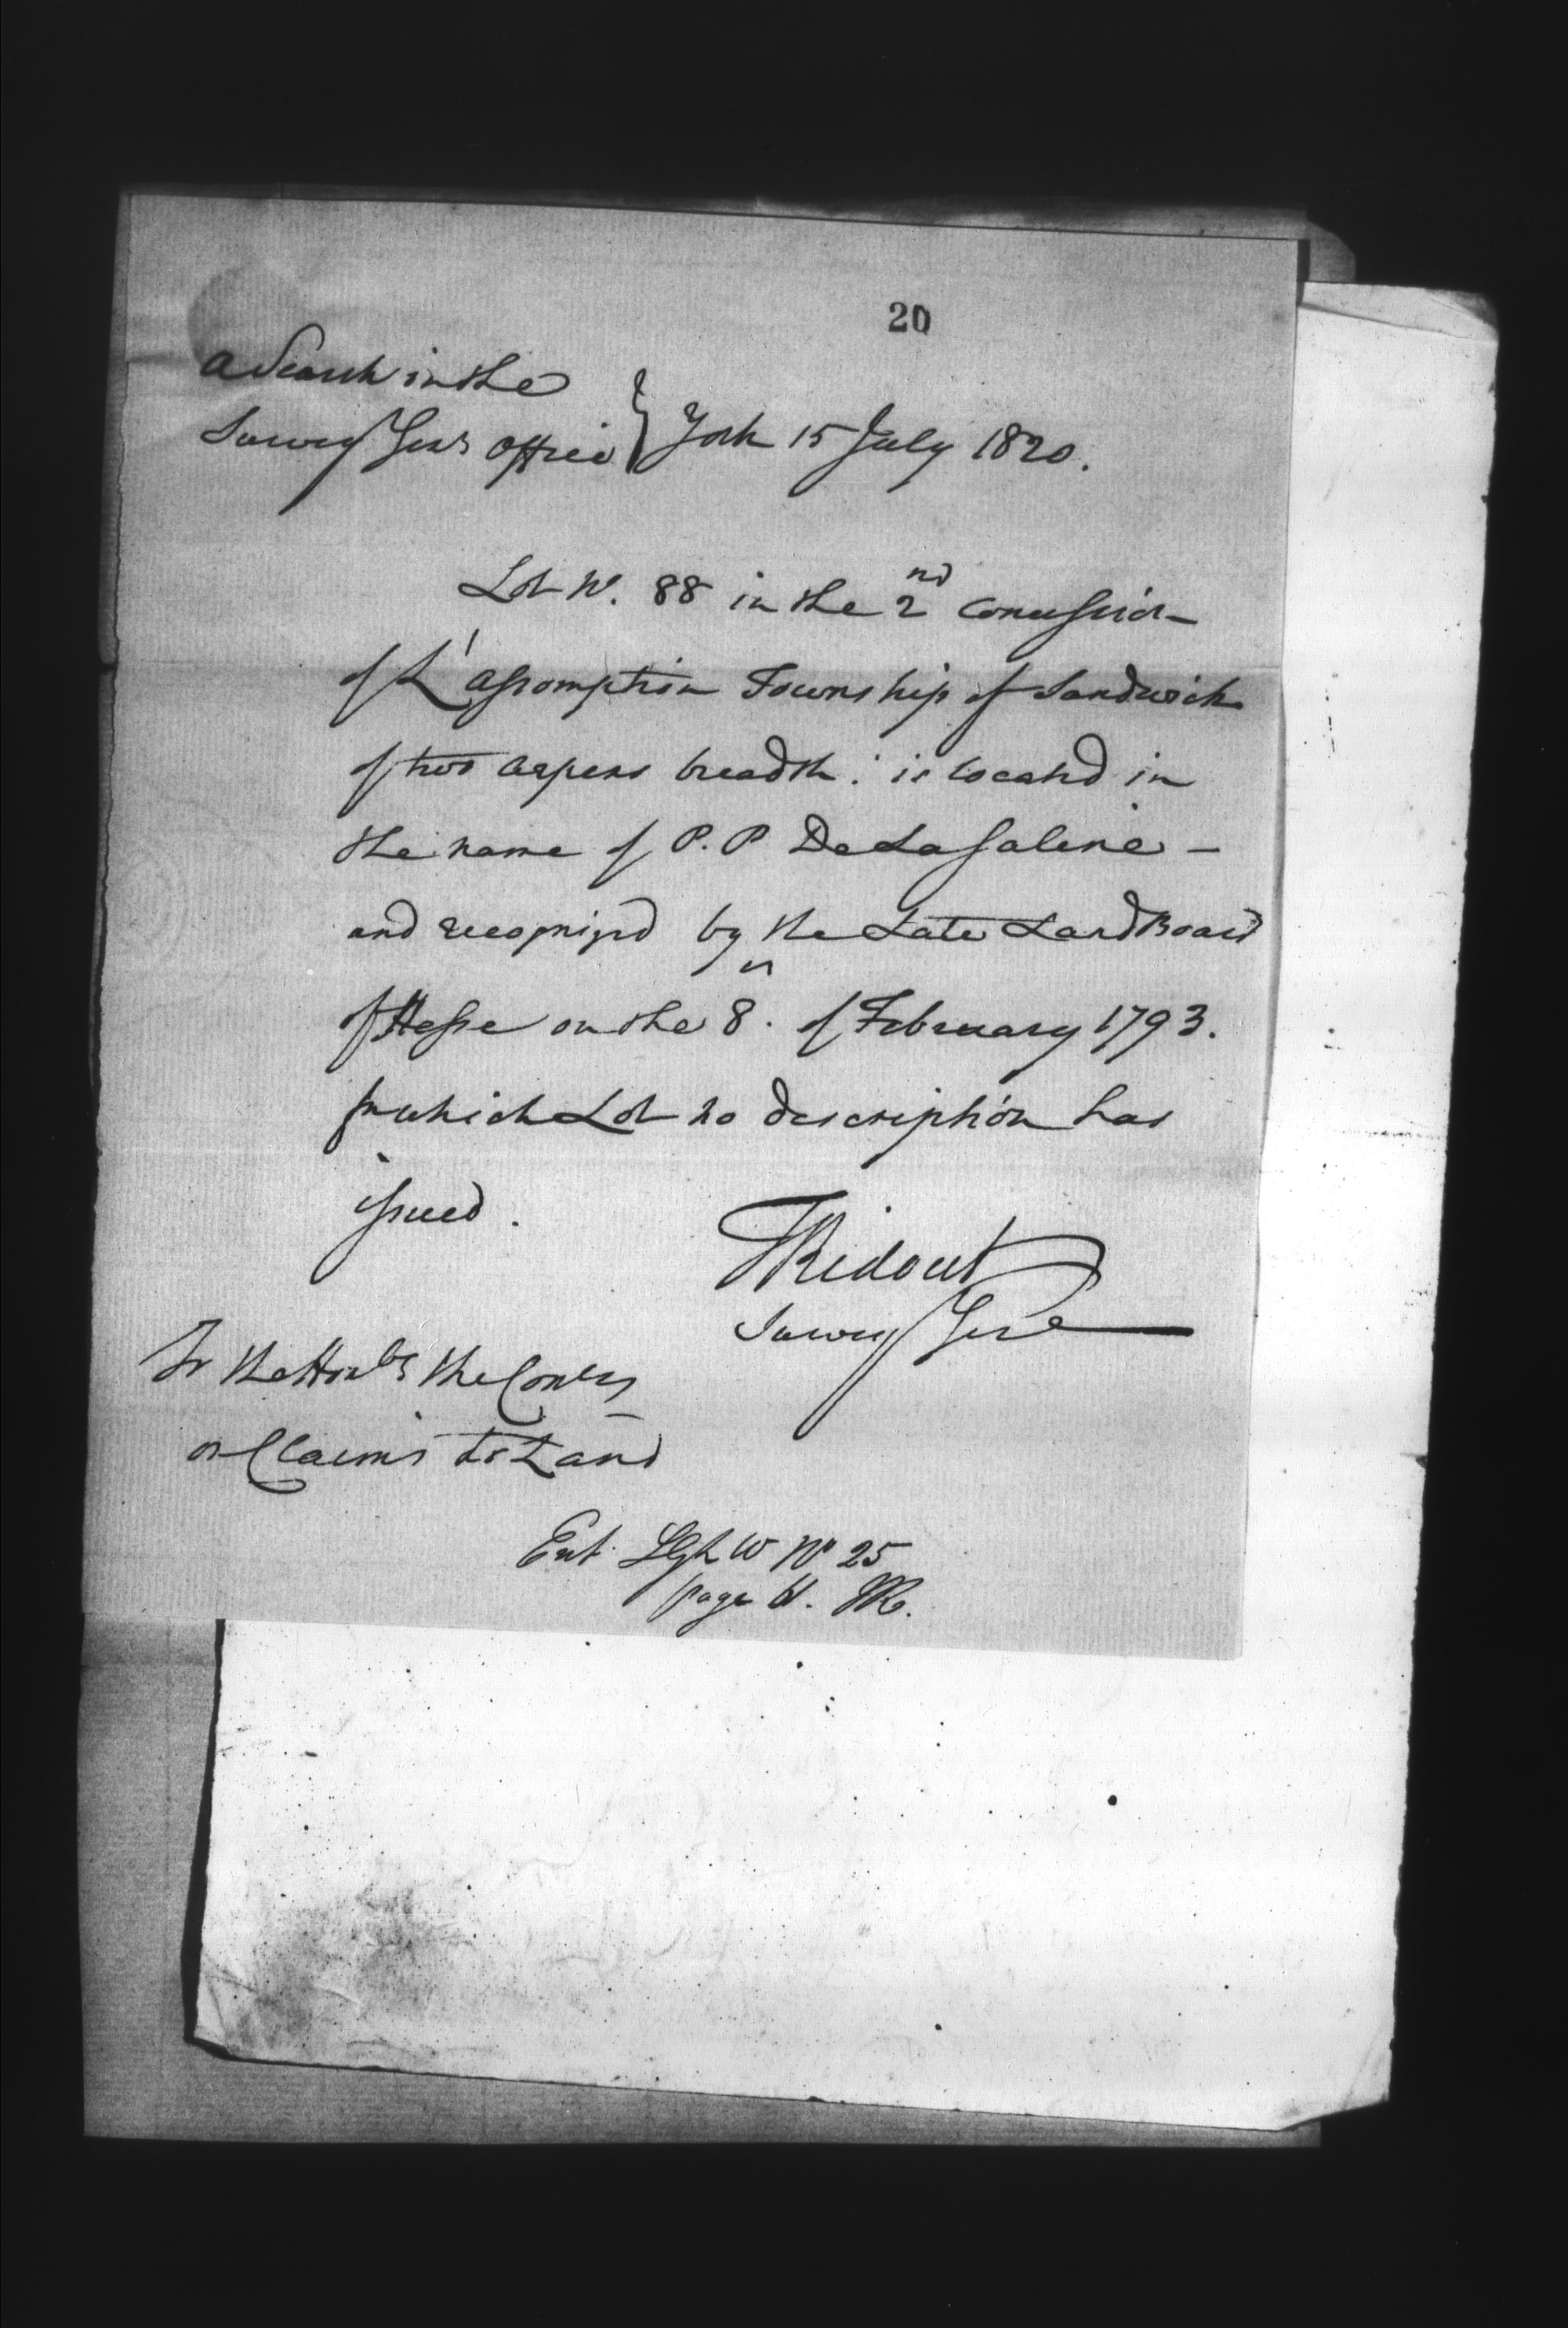 20
a Search in the
Survey Genls Office } York 15 July 1820.
Lot No. 88 in the 2nd Concession
of L'assomption Township of Sandwich
of two arpens breadth: is located in
the name of P. P De La Saline -
and recognized by the Late Land Board
of Hesse on the 8th. of February 1793.
for which Lot no description has
issued.
T Ridout
Survey Genl
To the Honble the Comrs
on Claims to Land
Ent. W No 25
page